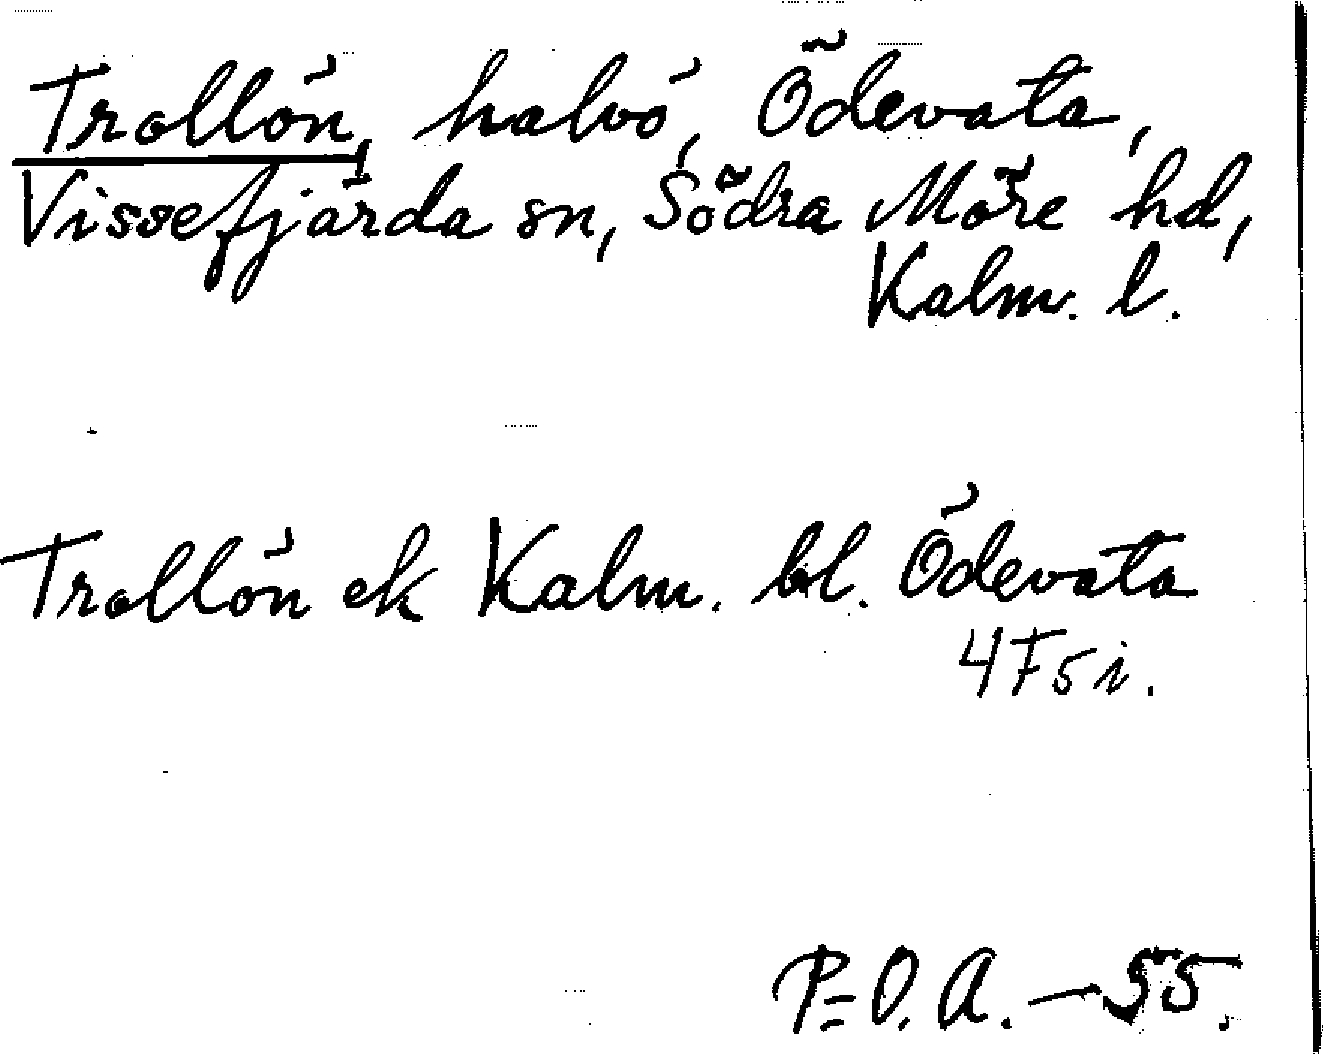 Trollön, halvö, Ödevata,
Vissefjärda sn, Södra Möre hd,
Kalm. l.
Trollön ek Kalm. bl. Ödevata
4F5i.
P=O. A. - 55.